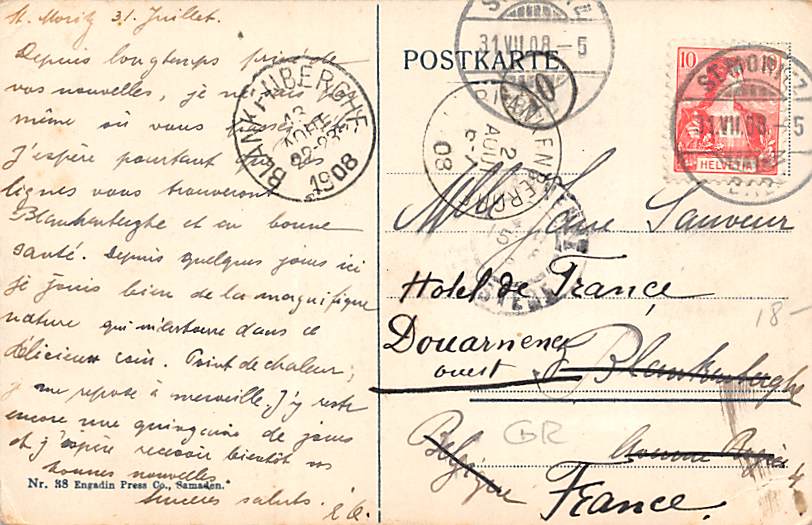 St. Moritz 31. Juillet.
Depuis longtemps privé de
vos nouvelles, je ne sais
même où vous
J'espère pourtant que ces
lignes vous trouveront
Blankenberghe et en bonne
santé. Depuis quelques jours ici
je jouis bien de la magnifique
nature qui m'entoure dans ce
délicieux coin. Point de chaleur,
je me repose à merveille. J'y reste
encore une quinzaine de jours
et j'espère recevoir bientôt vos
bonnes nouvelles
Sincères saluts.
Nr. 38 Engadin Press Co., Samaden.
POSTKARTE
31.VII.08.-5
10
BLANKENBERGHE
13
AOUT
1908
BLANKENBERGHE
2
AOUT
08
10
ST. MORITZ
31.VII.08.-5
HELVETIA
Mlle Jane Sauveur
Hotel de France
Douarnenez
ouest
Blankenberghe
18-
GR
Belgique
France.